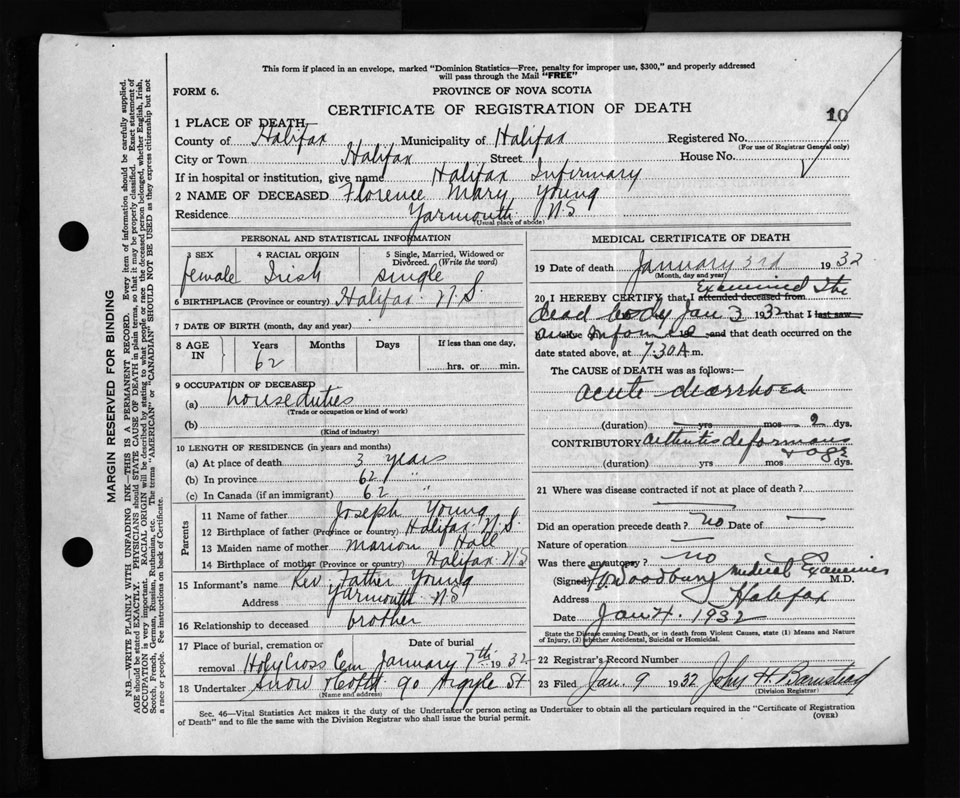 This form if placed in an envelope, marked "Dominion Statistics—Free, penalty for improper use, $300," and properly addressed
will pass through the Mail "FREE"
FORM 6.
PROVINCE OF NOVA SCOTIA
CERTIFICATE OF REGISTRATION OF DEATH
10
1 PLACE OF DEATH,
County of Halifax Municipality of Halifax Registered No.
(For use of Registrar General only)
City or Town Halifax Street House No.
If in hospital or institution, give name Halifax Infirmary
2 NAME OF DECEASED Florence Mary Young
Residence Yarmouth N.S
(Usual place of abode)
PERSONAL AND STATISTICAL INFORMATION
3 SEX 4 RACIAL ORIGIN 5 Single, Married, Widowed or
Divorced. (Write the word)
female Irish single
6 BIRTHPLACE (Province or country) Halifax N.S.
7 DATE OF BIRTH (month, day and year)
8 AGE IN Years Months Days If less than one day,
62 hrs. or min.
9 OCCUPATION OF DECEASED
(a) house duties
(Trade or occupation or kind of work)
(b)
(Kind of industry)
10 LENGTH OF RESIDENCE (in years and months)
(a) At place of death 3 years
(b) In province 62 "
(c) In Canada (if an immigrant) 62 "
Parents
11 Name of father Joseph Young
12 Birthplace of father (Province or country) Halifax N.S.
13 Maiden name of mother Marion Hall
14 Birthplace of mother (Province or country) Halifax N S
15 Informant's name Rev. Father Young
Address Yarmouth N S
16 Relationship to deceased brother
17 Place of burial, cremation or Date of burial
removal Holy Cross Cem January 7th 1932
18 Undertaker Snow & Co Ltd 90 Argyle St
(Name and address)
MEDICAL CERTIFICATE OF DEATH
19 Date of death January 3rd 1932
(Month, day and year)
20 I HEREBY CERTIFY, that I attended deceased from Examined the
dead body Jan 3 1932 that I last saw
and that death occurred on the
date stated above, at 7:30 A.m.
The CAUSE of DEATH was as follows:—
acute diarrhoea
(duration) yrs mos 2 dys.
CONTRIBUTORY arthritis deformans
& age
(duration) yrs mos dys.
21 Where was disease contracted if not at place of death?
Did an operation precede death? no Date of —
Nature of operation —
Was there an autopsy? no
(Signed) Woodbury Medical Examiner
M.D.
Address Halifax
Date Jan 4. 1932
State the Disease causing Death, or in death from Violent Causes, state (1) Means and Nature
of Injury, (2) whether Accidental, Suicidal or Homicidal.
22 Registrar's Record Number
23 Filed Jan. 9 1932 John H Barnstead
(Division Registrar)
Sec. 46—Vital Statistics Act makes it the duty of the Undertaker or person acting as Undertaker to obtain all the particulars required in the "Certificate of Registration
of Death" and to file the same with the Division Registrar who shall issue the burial permit.
(OVER)
MARGIN RESERVED FOR BINDING
N.B.—WRITE PLAINLY WITH UNFADING INK—THIS IS A PERMANENT RECORD. Every item of information should be carefully supplied.
AGE should be stated EXACTLY. PHYSICIANS should STATE CAUSE OF DEATH in plain terms, so that it may be properly classified. Exact statement of
OCCUPATION is very important. RACIAL ORIGIN will be described by stating to what people or race the deceased person belonged, whether English, Irish,
Scotch, French, German, Russian, Ruthenian, etc. The terms "AMERICAN" or "CANADIAN" SHOULD NOT BE USED as they express citizenship but not
a race or people. Fee instructions on back of Certificate.